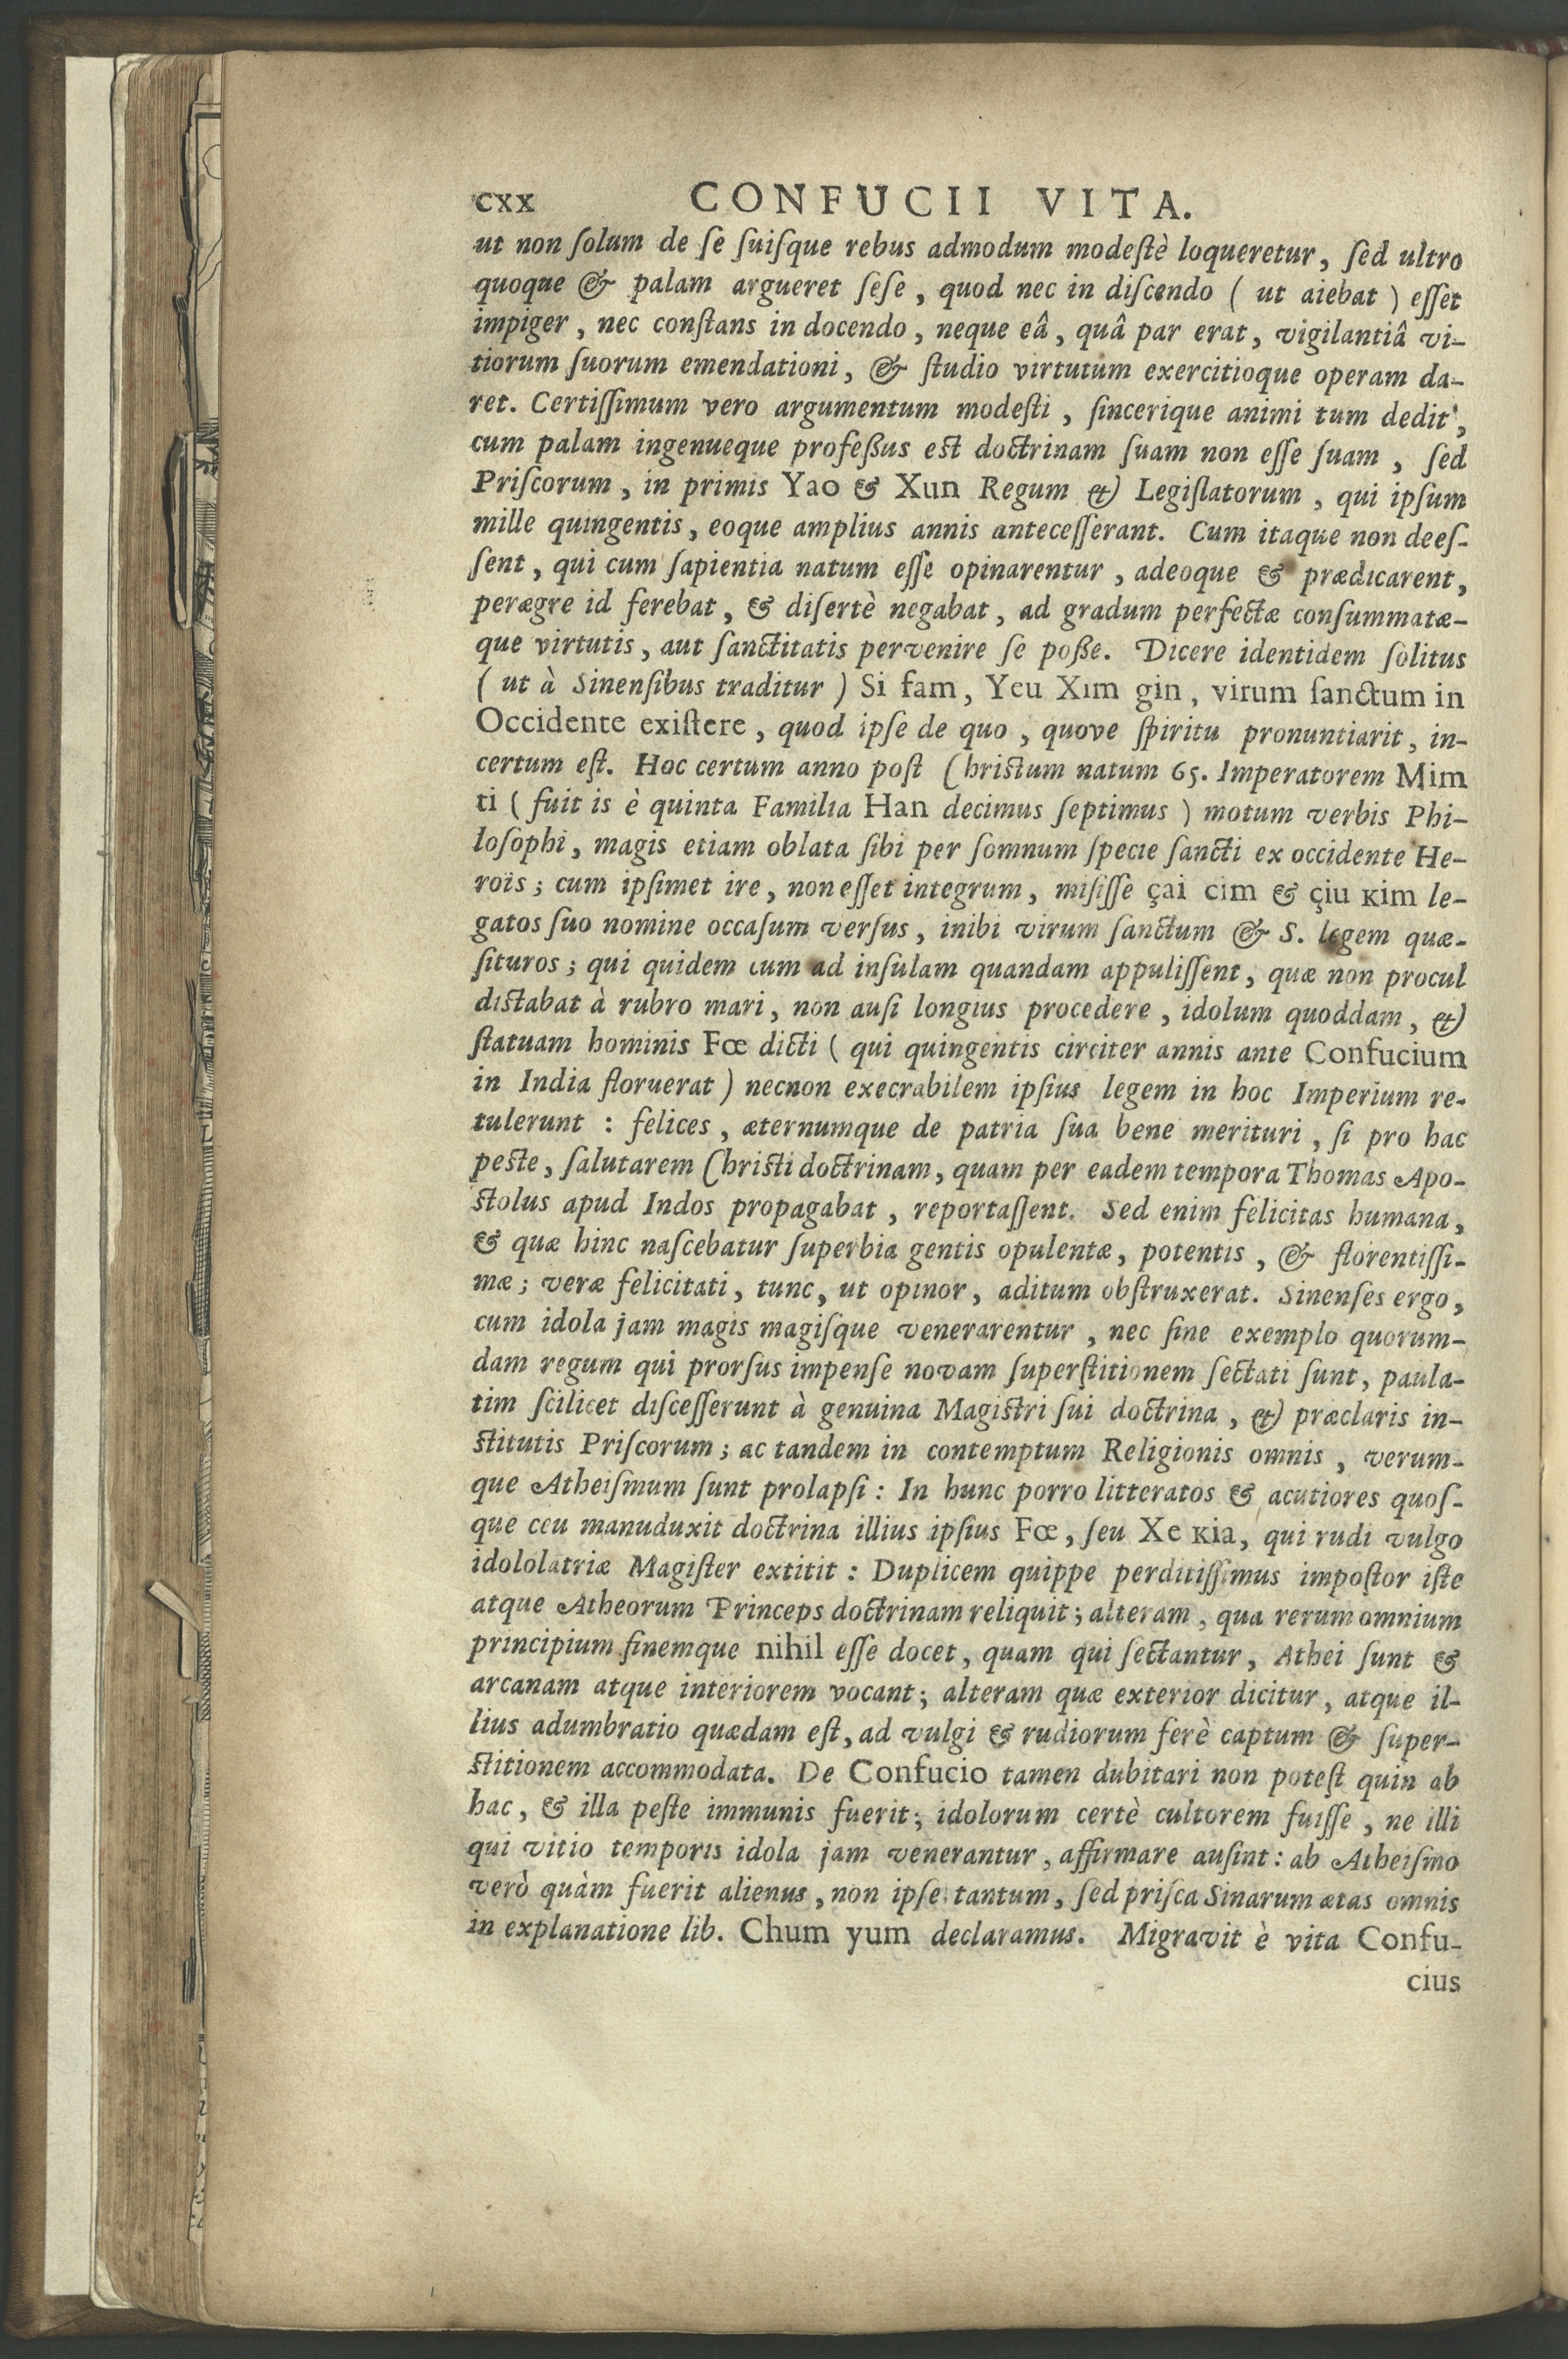 cxx CONFUCII VITA.
ut non ſolum de ſe ſuiſque rebus admodum modeſtè loqueretur, ſed ultro
quoque & palam argueret ſeſe, quod nec in diſcendo ( ut aiebat ) eſſet
impiger, nec conſtans in docendo, neque eâ, quâ par erat, vigilantiâ vi-
tiorum ſuorum emendationi, & ſtudio virtutum exercitioque operam da-
ret. Certiſſimum vero argumentum modeſti, ſincerique animi tum dedit,
cum palam ingenueque profeßus est doctrinam ſuam non eſſe ſuam, ſed
Priſcorum, in primis Yao & Xun Regum & Legiſlatorum, qui ipſum
mille quingentis, eoque amplius annis anteceſſerant. Cum itaque non deeſ-
ſent, qui cum ſapientia natum eſſe opinarentur, adeoque & prædicarent,
peræegre id ferebat, & diſertè negabat, ad gradum perfectæ conſummatæ-
que virtutis, aut ſanctitatis pervenire ſe poße. Dicere identidem ſolitus
( ut à Sinenſibus traditur ) Si fam, Yeu Xim gin, virum ſanctum in
Occidente exiſtere, quod ipſe de quo, quove ſpiritu pronuntiarit, in-
certum eſt. Hoc certum anno poſt Chriſtum natum 65. Imperatorem Mim
ti ( fuit is è quinta Familia Han decimus ſeptimus ) motum verbis Phi-
loſophi, magis etiam oblata ſibi per ſomnum ſpecie ſancti ex occidente He-
rois; cum ipſimet ire, non eſſet integrum, miſiſſe çai cim & çiu kim le-
gatos ſuo nomine occaſum verſus, inibi virum ſanctum & S. legem quæ-
ſituros; qui quidem cum ad inſulam quandam appuliſſent, quæ non procul
diſtabat à rubro mari, non auſi longius procedere, idolum quoddam, &
ſtatuam hominis Fœ dicti ( qui quingentis circiter annis ante Confucium
in India floruerat ) necnon execrabilem ipſius legem in hoc Imperium re-
tulerunt : felices, æternumque de patria ſua bene merituri, ſi pro hac
peſte, ſalutarem Chriſti doctrinam, quam per eadem tempora Thomas Apo-
ſtolus apud Indos propagabat, reportaſſent. Sed enim felicitas humana,
& quæ hinc naſcebatur ſuperbia gentis opulentæ, potentis, & florentiſſi-
mæ; veræ felicitati, tunc, ut opinor, aditum obſtruxerat. Sinenſes ergo,
cum idola jam magis magiſque venerarentur, nec ſine exemplo quorum-
dam regum qui prorſus impenſe novam ſuperſtitionem ſectati ſunt, paula-
tim ſcilicet diſceſſerunt à genuina Magiſtri ſui doctrina, & præclaris in-
ſtitutis Priſcorum; ac tandem in contemptum Religionis omnis, verum-
que Atheiſmum ſunt prolapſi : In hunc porro litteratos & acutiores quoſ-
que ceu manuduxit doctrina illius ipſius Fœ, ſeu Xe kia, qui rudi vulgo
idololatriæ Magiſter extitit : Duplicem quippe perditiſſimus impoſtor iſte
atque Atheorum Princeps doctrinam reliquit; alteram, qua rerum omnium
principium finemque nihil eſſe docet, quam qui ſectantur, Athei ſunt &
arcanam atque interiorem vocant; alteram quæ exterior dicitur, atque il-
lius adumbratio quædam eſt, ad vulgi & rudiorum ferè captum & ſuper-
ſtitionem accommodata. De Confucio tamen dubitari non poteſt quin ab
hac, & illa peſte immunis fuerit; idolorum certè cultorem fuiſſe, ne illi
qui vitio temporis idola jam venerantur, affirmare auſint : ab Atheiſmo
verò quàm fuerit alienus, non ipſe tantum, ſed priſca Sinarum ætas omnis
in explanatione lib. Chum yum declaramus. Migravit è vita Confu-
cius